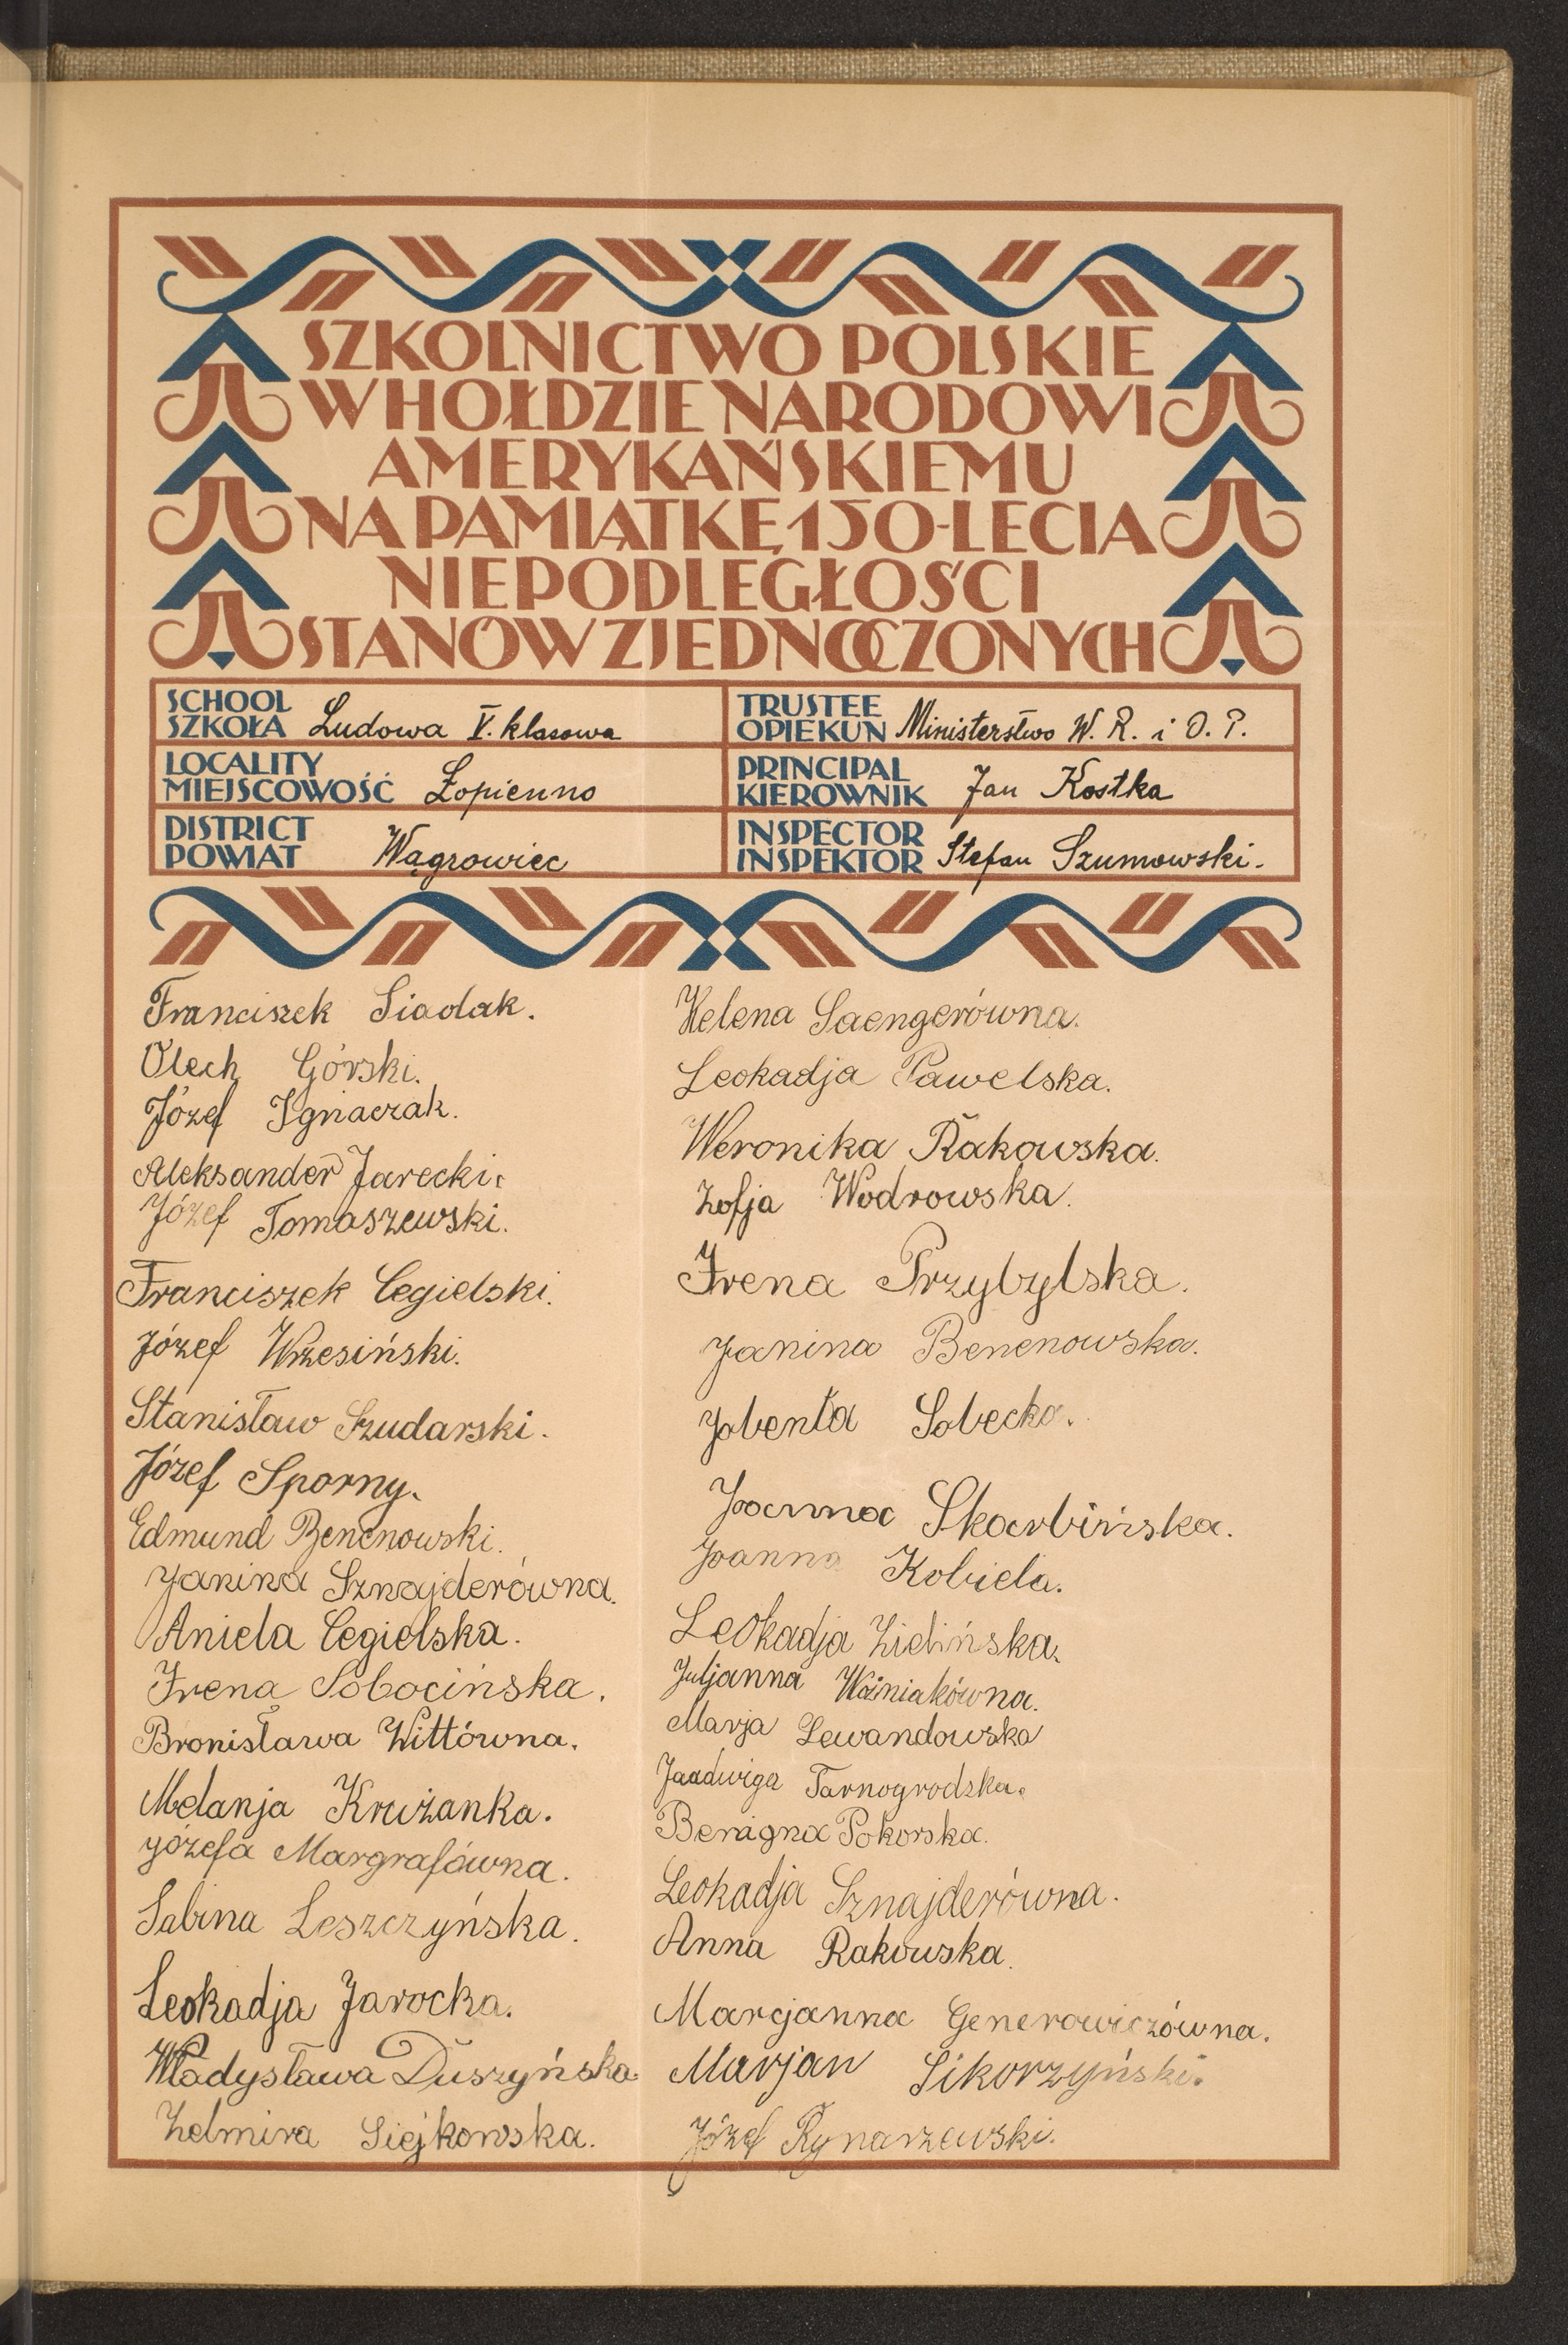 SZKOLNICTWO POLSKIE
W HOŁDZIE NARODOWI
AMERYKAŃSKIEMU
NA PAMIĄTKĘ 150-LECIA
NIEPODLEGŁOŚCI
STANÓW ZJEDNOCZONYCH
SCHOOL
SZKOŁA Ludowa V. klasowa
LOCALITY
MIEJSCOWOŚĆ Łopienno
DISTRICT
POWIAT Wągrowiec
TRUSTEE
OPIEKUN Ministerstwo W. R. i O. P.
PRINCIPAL
KIEROWNIK Jan Kostka
INSPECTOR
INSPEKTOR Stefan Szumowski.
Franciszek Siadak.
Olech Górski.
Józef Ignaczak.
Aleksander Jarecki.
Józef Tomaszewski.
Franciszek Cegielski.
Józef Wrzesiński.
Stanisław Szudarski.
Józef Sporny.
Edmund Benenowski.
Janina Sznajderówna.
Aniela Cegielska.
Irena Sobocińska.
Bronisława Wittówna.
Melanja Krużanka.
Józefa Margrafówna.
Sabina Leszczyńska.
Leokadja Jarocka.
Władysława Duszyńska
Zelmira Siejkowska.
Helena Saengerówna.
Leokadja Pawelska.
Weronika Rakowska.
Zofja Wodrowska.
Irena Przybylska.
Janina Benenowska.
Jolenta Sobecka.
Joanna Skarbińska.
Joanna Kobiela.
Leokadja Zielińska.
Juljanna Woźniakówna.
Marja Lewandowska
Jaadwiga Tarnogrodzka.
Benigna Pokorska.
Leokadja Sznajderówna.
Anna Rakowska.
Marcjanna Generowiczówna.
Marjan Sikorzyński.
Józef Rynarzewski.